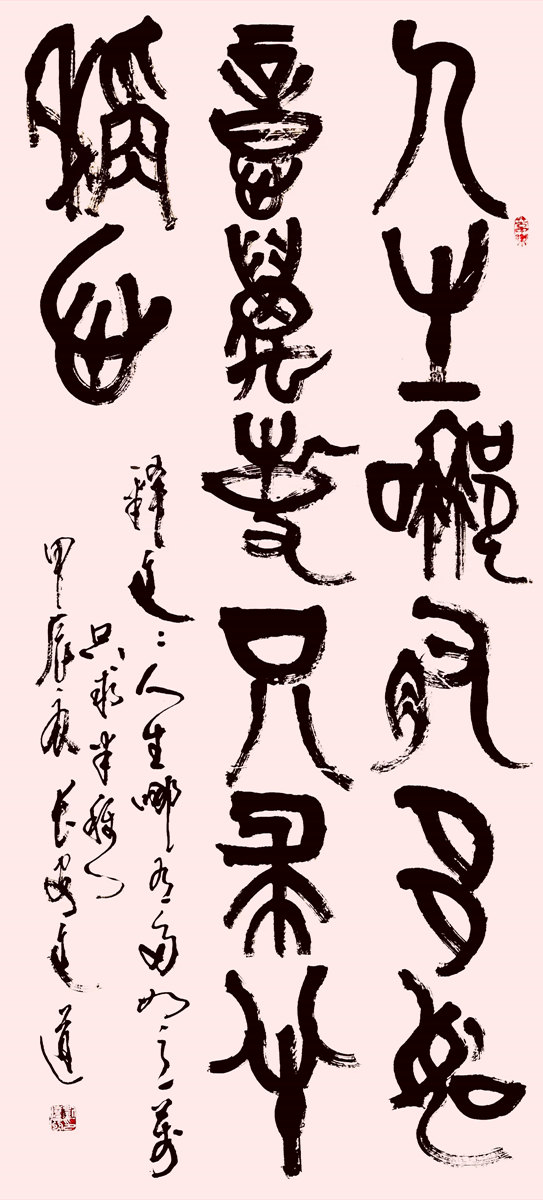 人生哪有多如
意萬事只求半
稱心
释文：人生哪有多如意萬
只求半稱心
甲辰 长安文道